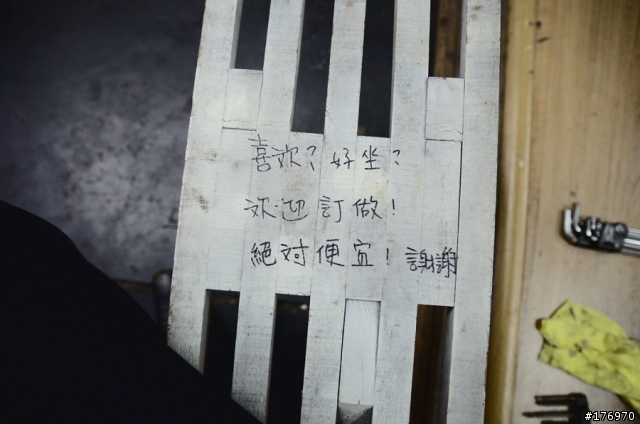 喜欢?好坐?
欢迎訂做!
絕対便宜!謝謝
#176970